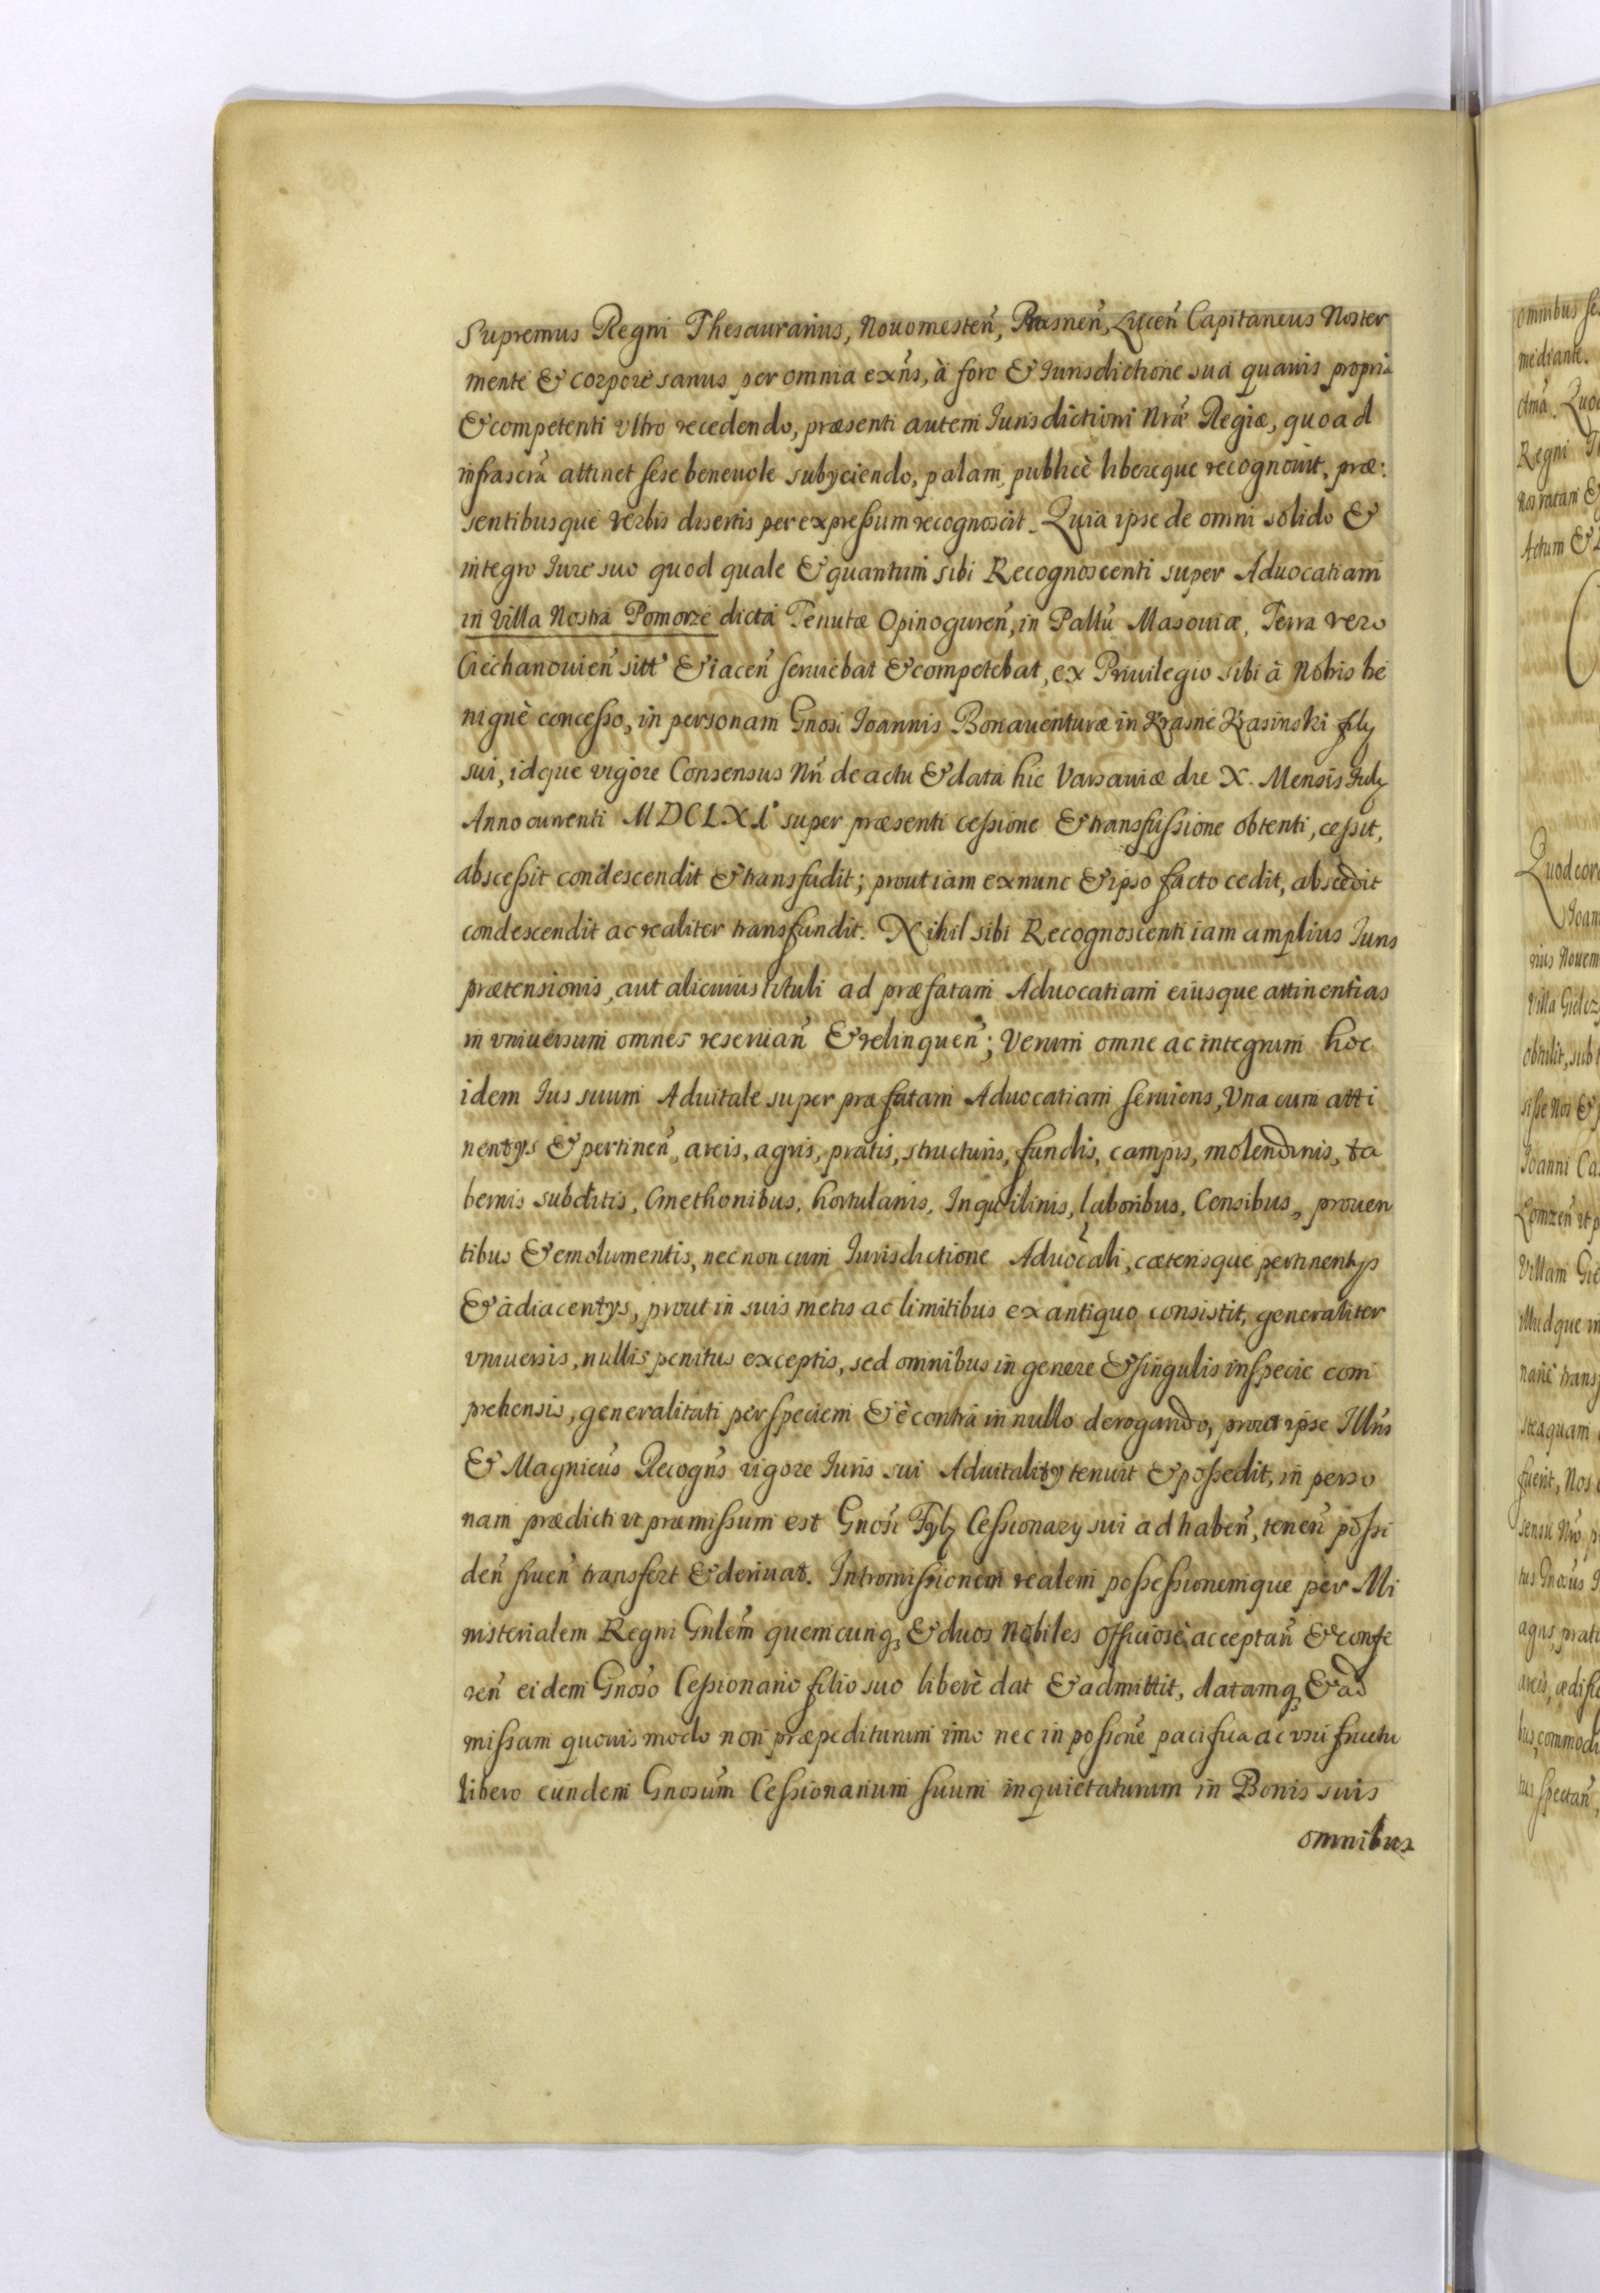 Supremus Regni Thesaurarius, Nouomesteñ, Prasneñ, Luceñ Capitaneus Noster
mente & corpore sanus per omnia exñs, à foro & Iurisdictione sua quauis propria
& competenti vltro recedendo, præsenti autem Iurisdictioni Nræ Regiæ, quo ad
infrascrã attinet sese beneuole subyciendo, palam, publicè libereque recognouit, præ:
sentibusque verbis disertis per expressum recognoscit. Quia ipse de omni solido &
integro Iure suo quod quale & quantum sibi Recognoscenti super Aduocatiam
in Villa Nostra Pomorze dicta Tenutæ Opinogureñ, in Pallũ Masouiæ, Terra vero
Ciechanouieñ sitt' & iaceñ seruiebat & competebat, ex Priuilegio sibi à Nobis be
nignè concesso, in personam Gnosi Ioannis Bonauenturæ in Krasne Krasinski filÿ
sui, idque vigore Consensus Nñ de actu & data hic Varsauiæ die X. Mensis Julÿ
Anno currenti MDCLXI° super præsenti cessione & transfussione obtenti, cessit,
abscessit condescendit & transfudit; prout iam exnunc & ipso facto cedit, abscedit
condescendit ac realiter transfundit. Nihil sibi Recognoscenti iam amplius Iuris
prætensionis, aut alicuius tituli ad præfatam Aduocatiam eiusque attinentias
in vniuersum omnes reseruañ & relinqueñ; Verum omne ac integrum hoc
idem Ius suum Aduitale super præfatam Aduocatiam seruiens, Vna cum atti
nentÿs & pertineñ, areis, agris, pratis, structuris, fundis, campis, molendinis, ta
bernis subditis, Cmethonibus, hortulanis, Inquilinis, laboribus, Censibus, prouen
tibus & emolumentis, nec non cum Iurisdictione Aduocali, cæterisque pertinentÿs
& adiacentÿs, prout in suis metis ac limitibus ex antiquo consistit, generaliter
vniuersis, nullis penitus exceptis, sed omnibus in genere & singulis in specie com
prehensis, generalitati per speciem & è contra in nullo derogando, prout ipse Illñs
& Magnicus Recogñs vigore Iuris sui Aduitalitÿ tenuit & possedit, in perso
nam prædicti vt præmissum est Gnosi Fylÿ Cessionarÿ sui ad habeñ, teneñ possi
deñ frueñ transfert & deriuat. Intromissionem realem possessionemque per Mi
nisterialem Regni Gnlem quemcunq, & duos Nobiles officiosè acceptañ & confe
reñ eidem Gnoso Cessionario filio suo liberè dat & admittit, datamq, & ad
missam quouis modo non præpediturum imo nec in possione pacifica ac vsu fructu
libero eundem Gnosum Cessionarium suum inquietaturum in Bonis suis
omnibus